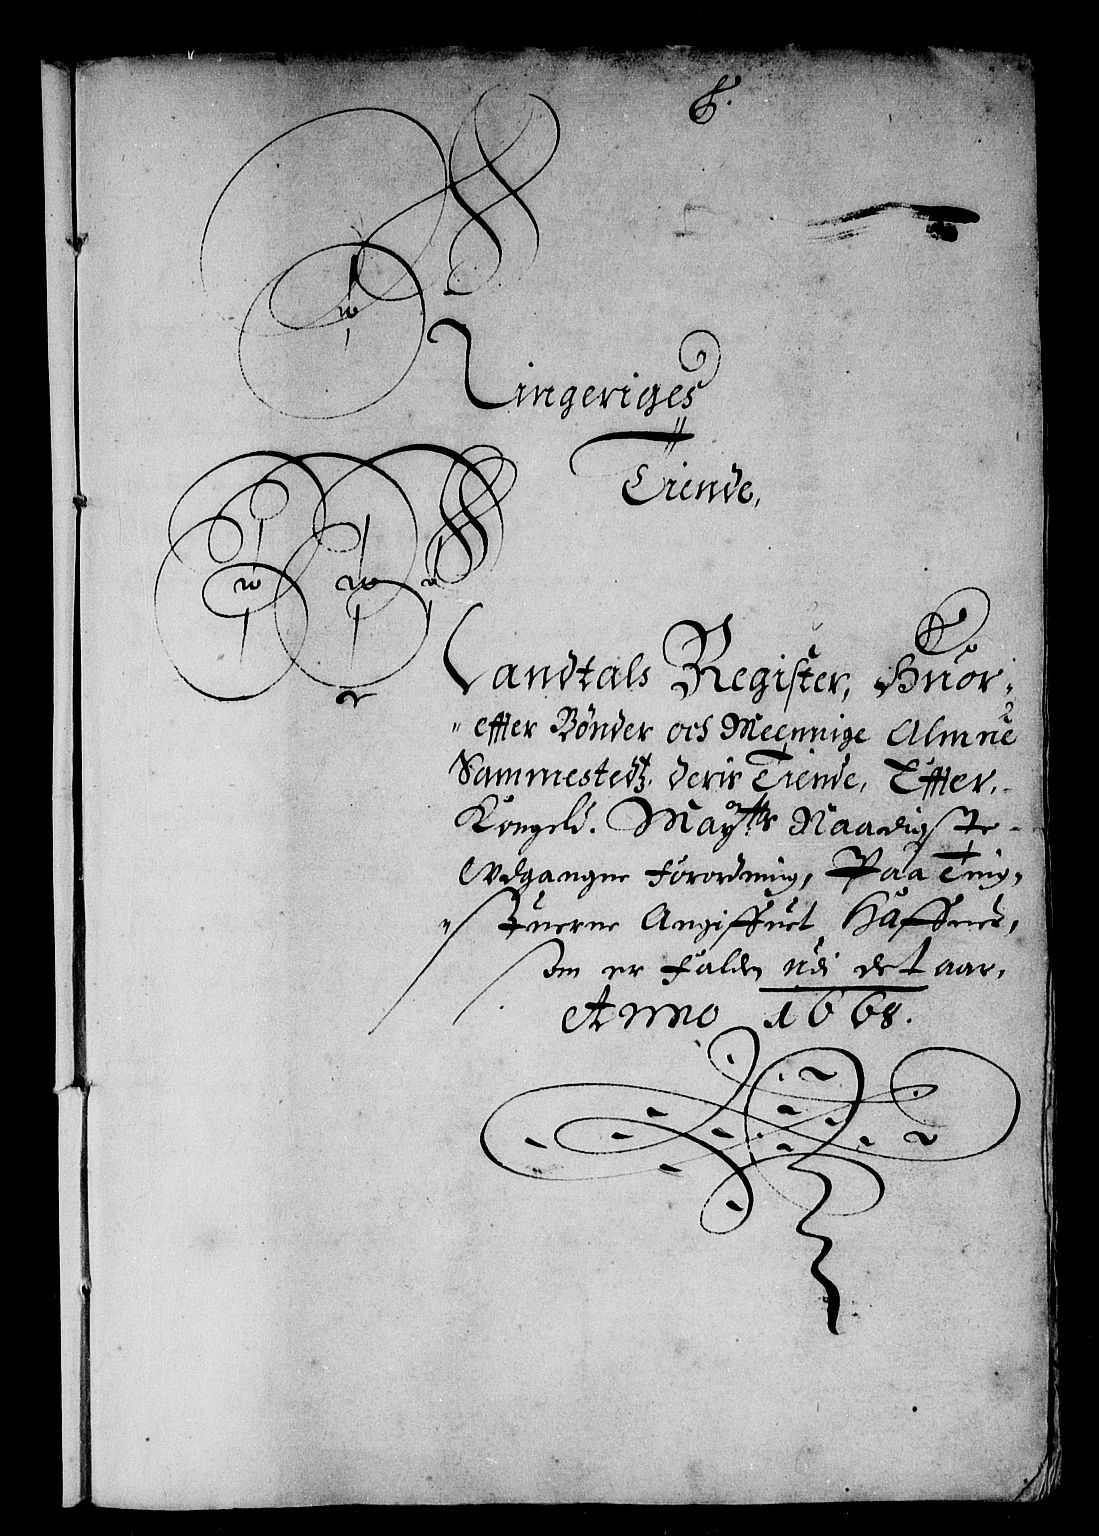 8.
Ringeriges
Tiende,
Mandtals Register, Huor-
effter Bønder och Meennige Almue
Sammestedtz, deris Tiende, Effter,
Kongeld. Mayttz Naadigste
Udgangne Forordning, Paa Ting,
stuerne Angiffuet Haffuer,
som er falden udi det aar,
Anno 1668.